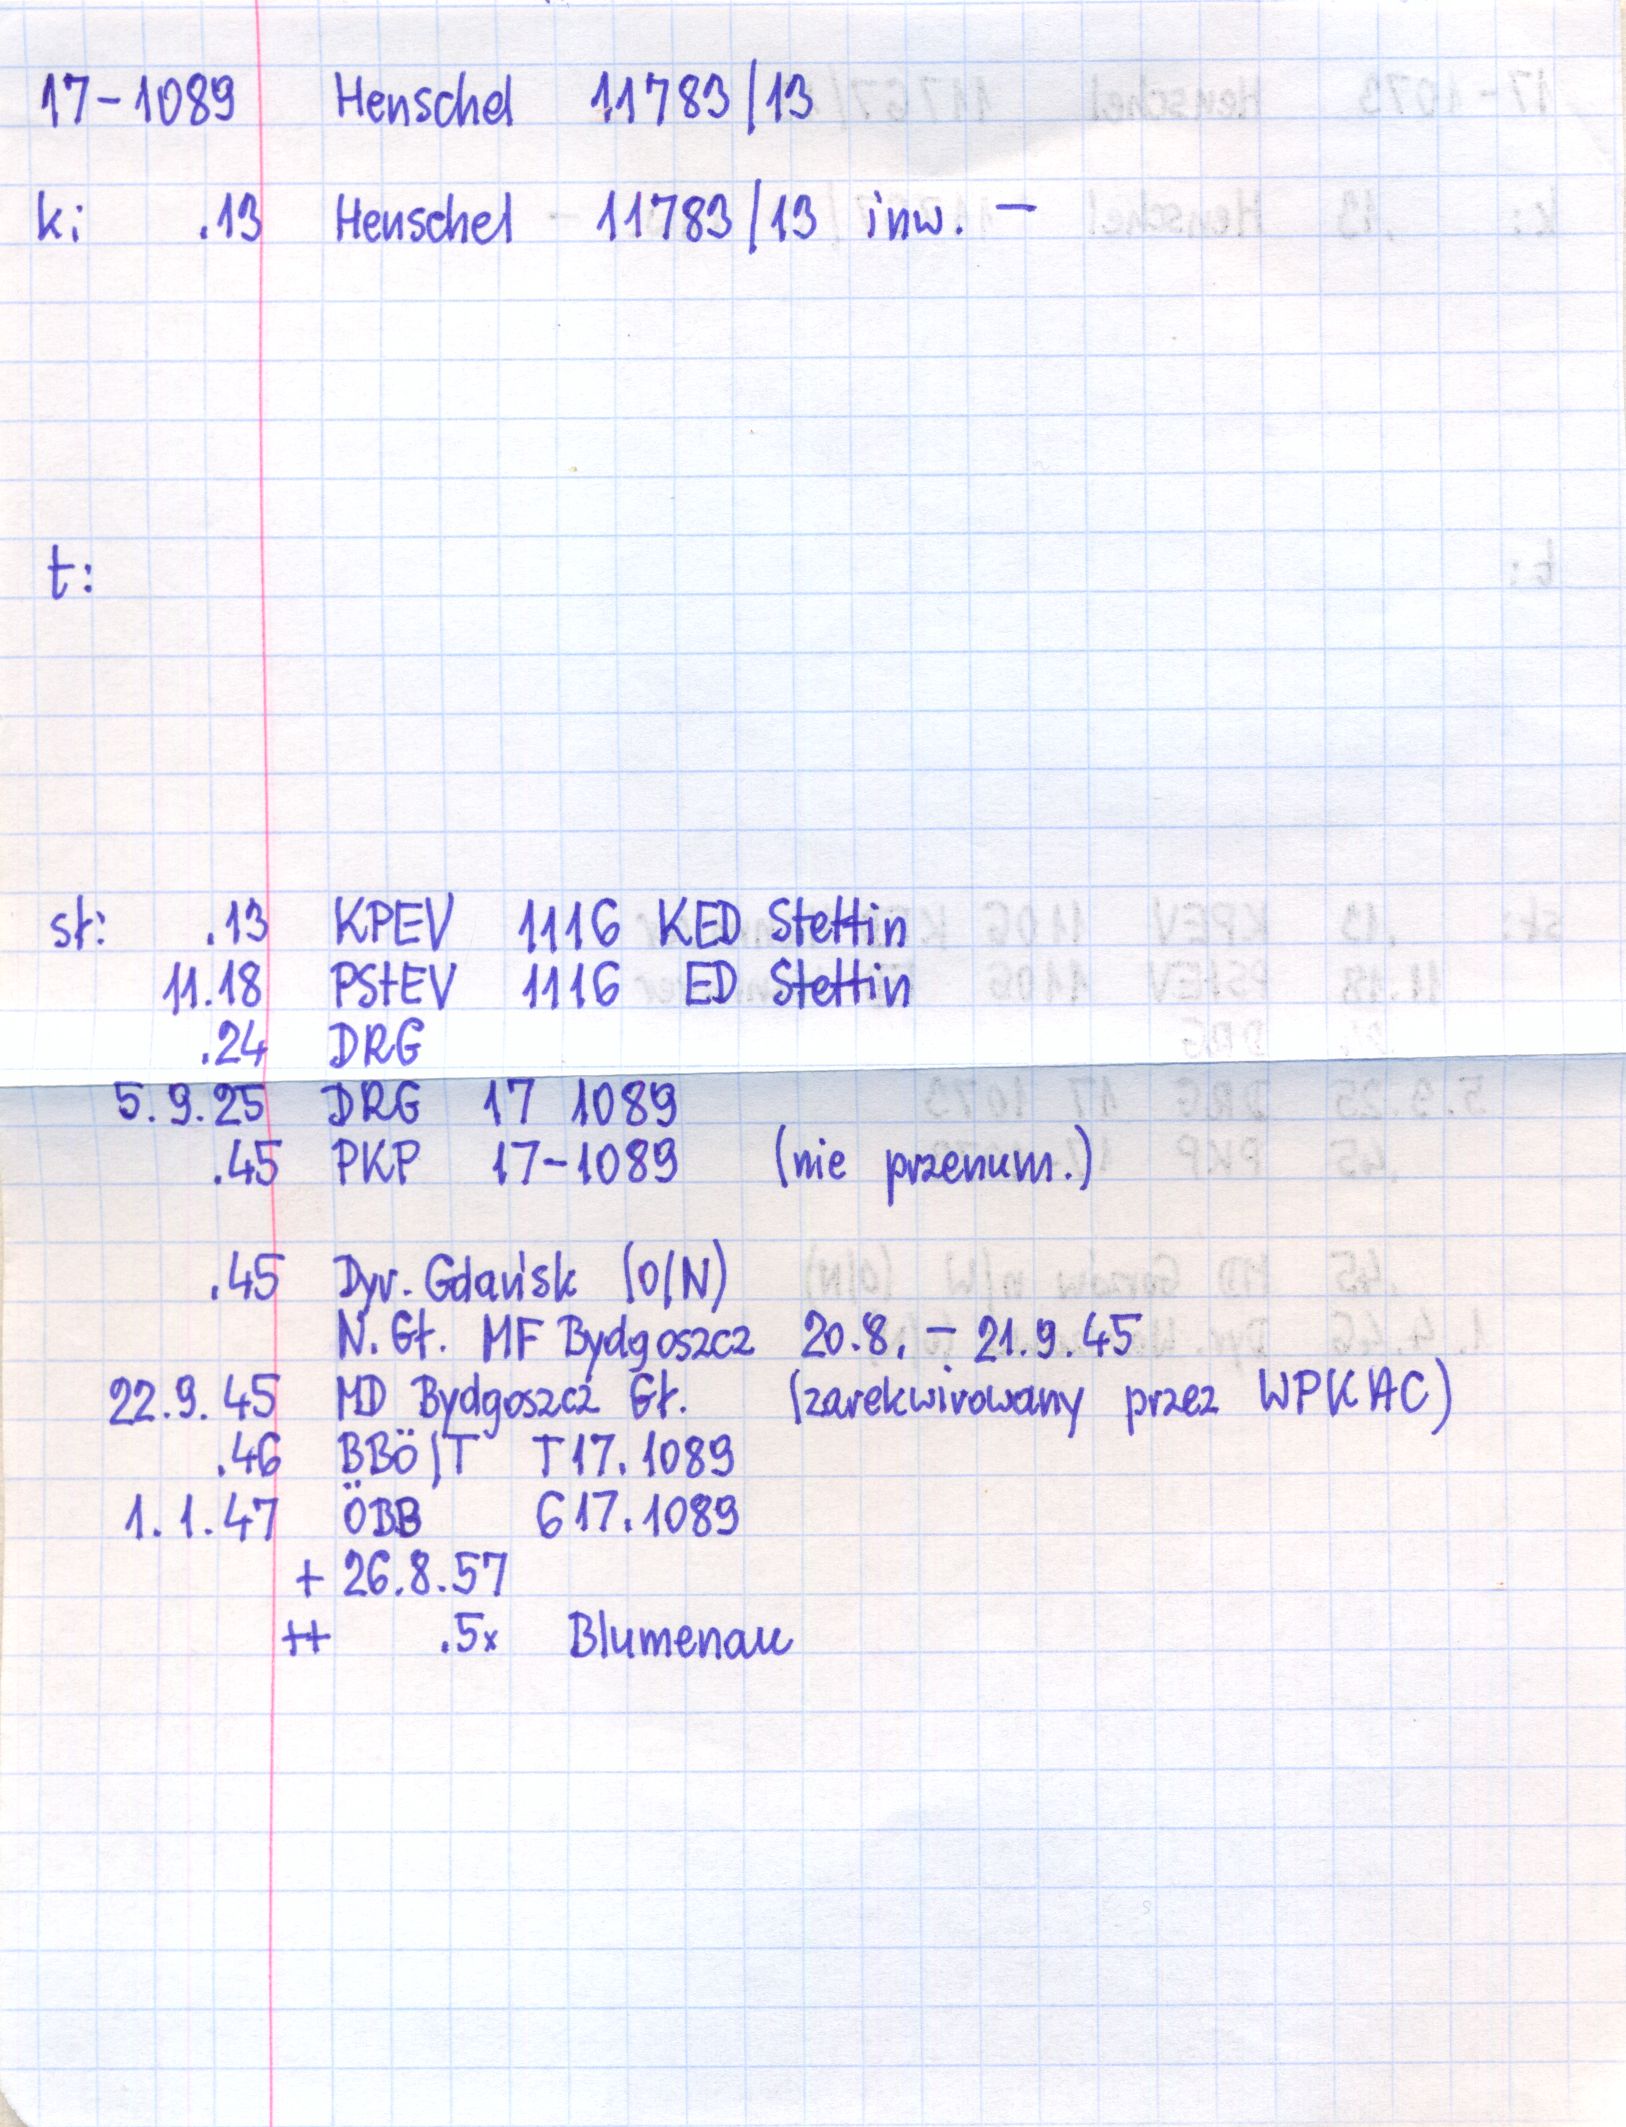 17-1089 Henschel 11783/13
k: .13 Henschel 11783/13 inw. –
t:
st: .13 KPEV 1116 KED Stettin
11.18 PStEV 1116 ED Stettin
.24 DRG
5.9.25 DRG 17 1089
.45 PKP 17-1089 (nie przenum.)
.45 Dyr. Gdańsk (O/N)
N. Gł. MF Bydgoszcz 20.8. – 21.9.45
22.9.45 MD Bydgoszcz Gł. (zarekwirowany przez WPKAC)
.46 BBÖ/T T17.1089
1.1.47 ÖBB 617.1089
+ 26.8.57
++ .5x Blumenau